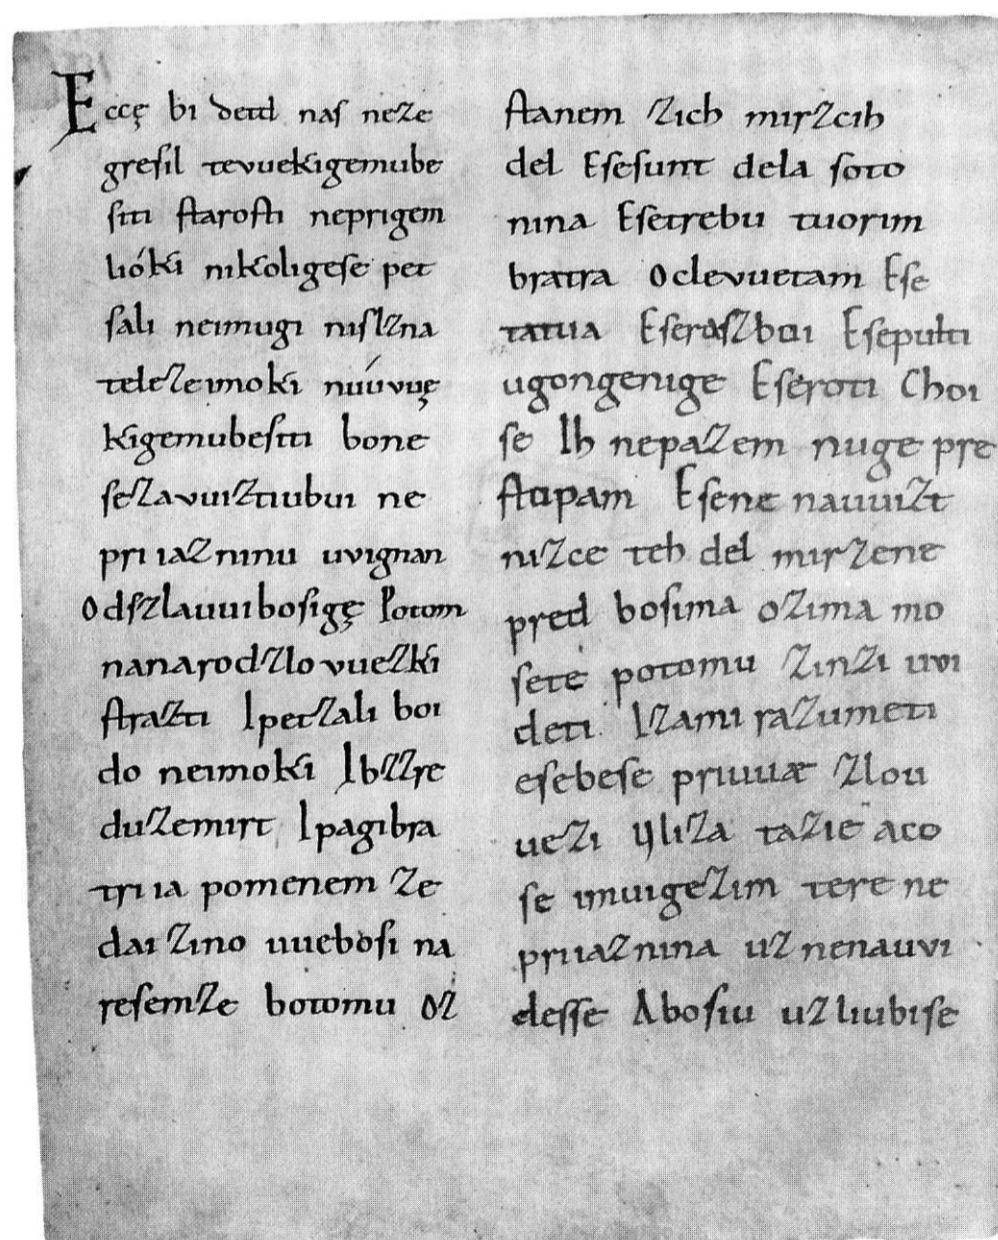 Eccę bi detd naſ neze
greſil tevuekigemube
ſiti ſtaroſti neprigem
lióki nikoligeſe pet
ſali neimugi niſlzna
teleze imoki nuúvuę
kigemubeſiti bone
ſezavuiztiubui ne
pri iazninu uvignan
Odſzlauuiboſigę Potom
nanarodzlo vuezki
ſtrazti Ipetzali boi
do neimoki Ibzzre
duzemirt Ipagibra
tri ia pomenem ze
dai zino uueboſi na
reſemze botomu oz
ſtanem zich mirzcih
del Eſeſunt dela ſoto
nina Eſetrebu tuorim
bratra Oclevuetam Eſe
tatua Eſeraſzboi Eſepulti
ugongenige Eſeroti Choi
ſe Ih nepazem nuge pre
ſtopam Eſene nauuizt
nizce teh del mirzene
pred boſima ozima mo
ſete potomu zinzi uvi
deti Izami razumeti
eſebeſe priuuæ zlou
uezi Yliza tazie aco
ſe imuigezim tere ne
priiaznina uz nenauvi
deſſe Aboſiu uz liubiſe